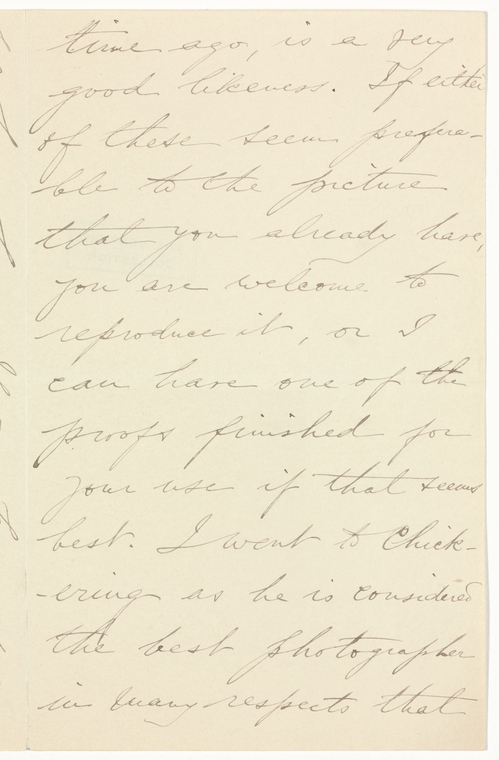 time ago, is a very
good likeness. If either
of these seem prefera-
ble to the picture
that you already have,
you are welcome to
reproduce it, or I
can have one of the
proofs finished for
your use if that seems
best. I went to Chick-
-ering as he is considered
the best photographer
in many respects that